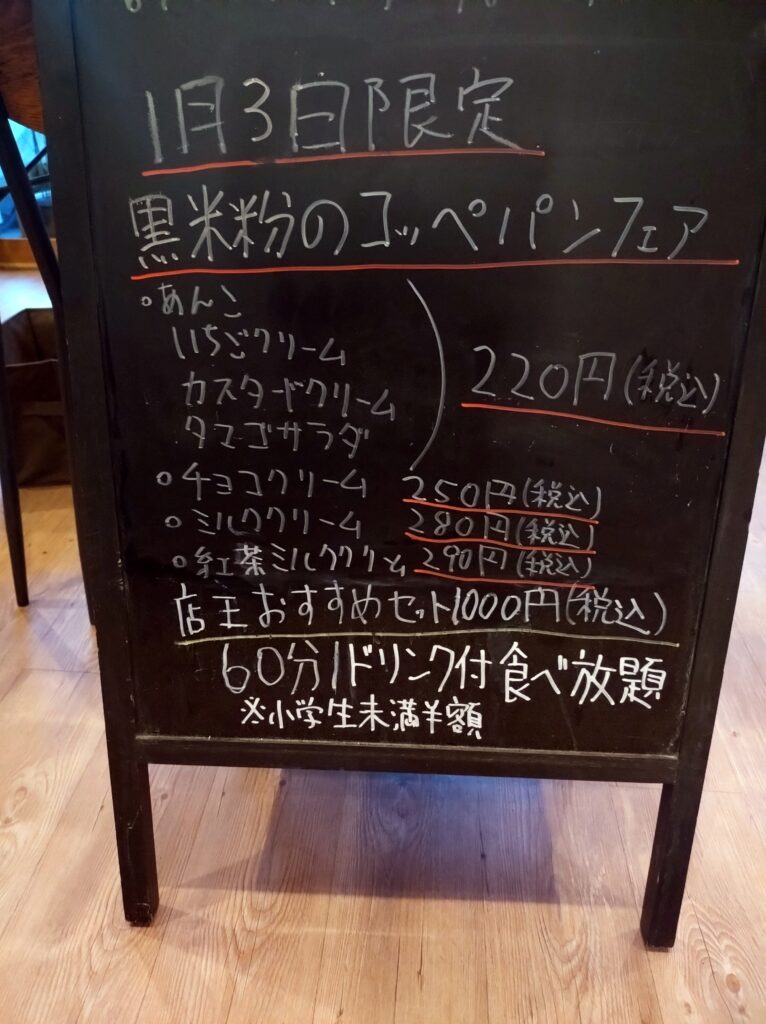 1月3日限定
黒米粉のコッペパンフェア
○あんこ
いちごクリーム
カスタードクリーム
タマゴサラダ
220円(税込)
○チョコクリーム 250円(税込)
○ミルククリーム 280円(税込)
○紅茶ミルククリーム 290円(税込)
店王おすすめセット1000円(税込)
60分1ドリンク付食べ放題
※小学生未満半額